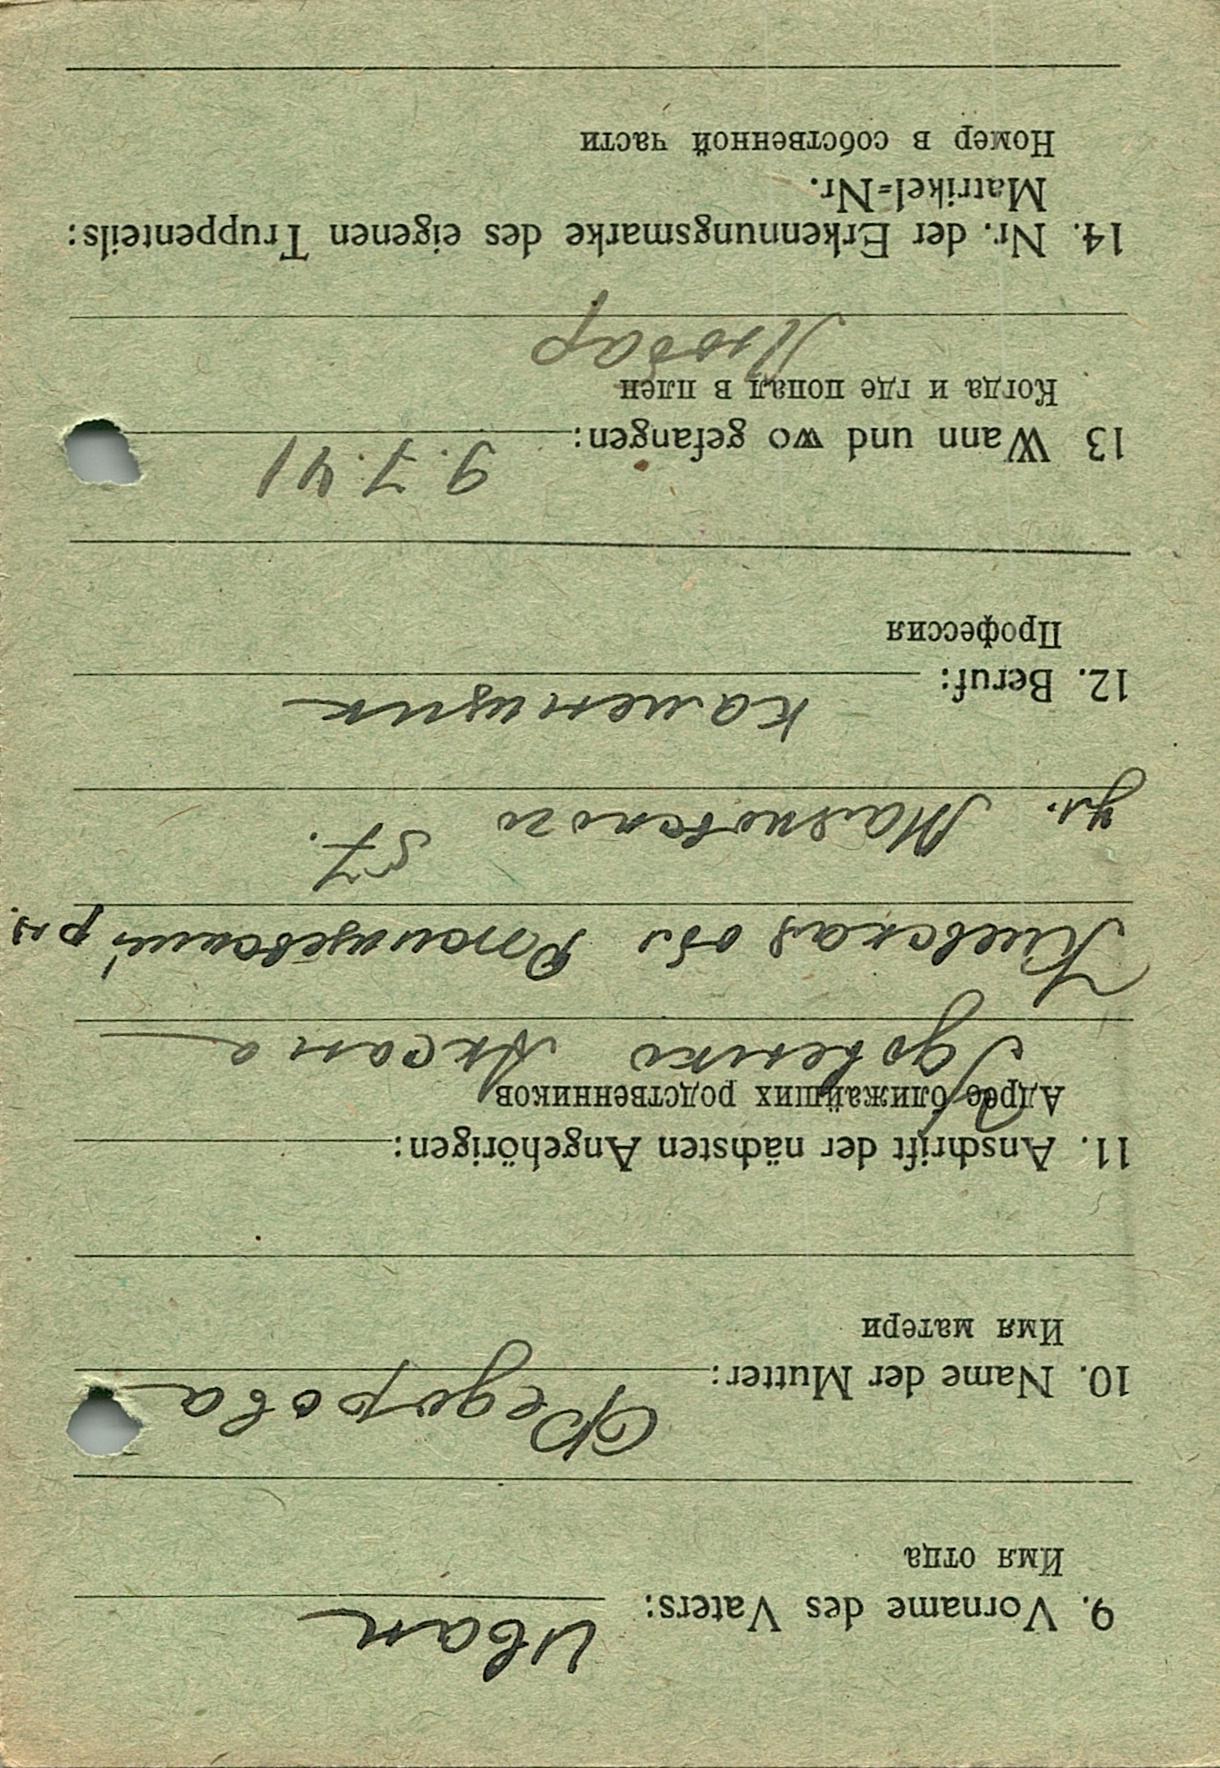 9. Vorname des Vaters: Иван
Имя отца
10. Name der Mutter: Федорова
Имя матери
11. Anschrift der nächsten Angehörigen:
Адрес ближайших родственников
Аксана
Киевская обл
ул. 57.
12. Beruf: каменщик
Профессия
13 Wann und wo gefangen: 9.7.41
Когда и где попал в плен
Любар
14. Nr. der Erkennungsmarke des eigenen Truppenteils:
Matrikel-Nr.
Номер в собственной части